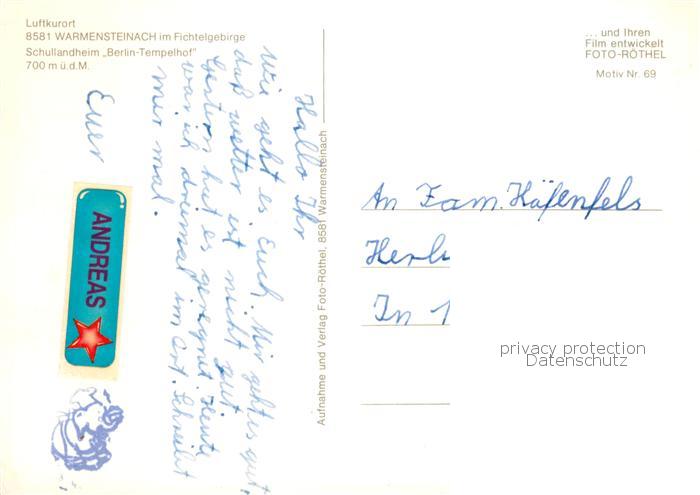 Luftkurort
8581 WARMENSTEINACH im Fichtelgebirge
Schullandheim „Berlin-Tempelhof"
700 m ü.d.M.
... und Ihren
Film entwickelt
FOTO-RÖTHEL
Motiv Nr. 69
Hallo Ihr
Wie geht es Euch. Mir geht es gut,
daß wetter ist nicht gut.
Gestern hat es geregnet. Heute
war ich dreimal im Ort. Schreibt
mir mal.
Euer
ANDREAS
Aufnahme und Verlag Foto-Röthel, 8581 Warmensteinach
An Fam. Häfenfels
Herl
In 1
privacy protection
Datenschutz